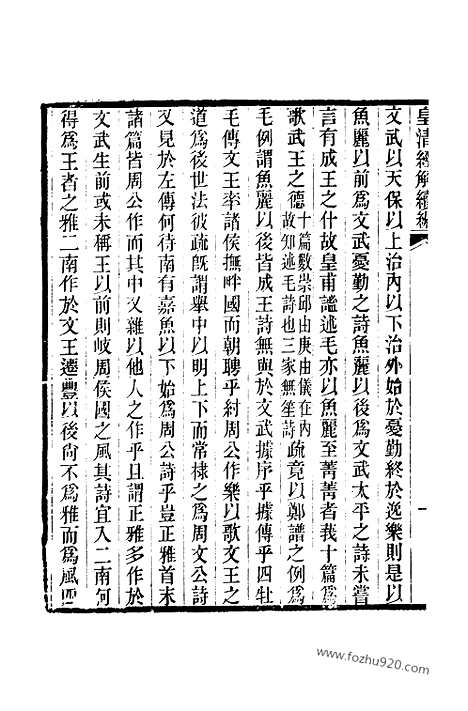 皇清經解續編
文武以天保以上治內以下治外始於憂勤終於逸樂則是以
魚麗以前爲文武憂勤之詩魚麗以後爲文武太平之詩未嘗
言有成王之什故皇甫謐述毛亦以魚麗至菁菁者莪十篇爲
歌武王之德十篇數崇邱由庚由儀在內故知述毛詩也三家無笙詩疏竟以鄭譜之例爲
毛例謂魚麗以後皆成王詩無與於文武據序乎據傳乎四牡
毛傳文王率諸侯撫畔國而朝聘乎紂周公作樂以歌文王之
道爲後世法彼疏旣謂舉中以明上下而常棣之爲周文公詩
又見於左傳何待南有嘉魚以下始爲周公詩乎豈正雅首末
諸篇皆周公作而其中又雜以他人之作乎且謂正雅多作於
文武生前或未稱王以前則岐周侯國之風其詩宜入二南何
得爲王者之雅二南作於文王遷豐以後尙不爲雅而爲風
一
www.fozhu920.com